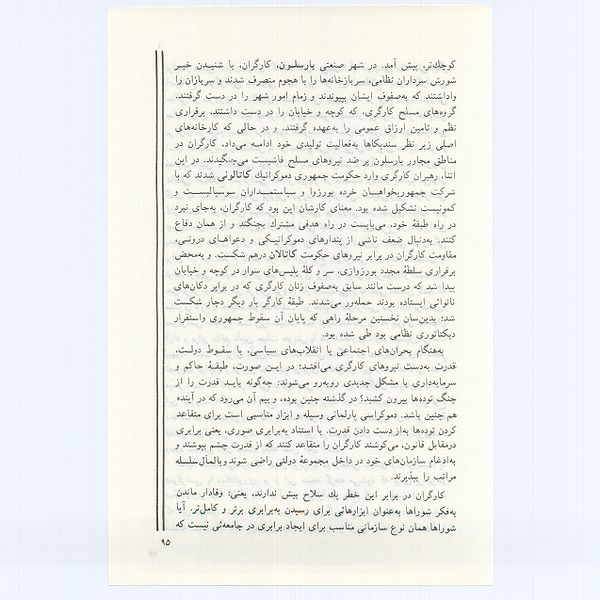 کوچك‌تر، پیش آمد. در شهر صنعتی بارسلون، کارگران، با شنیدن خبر
شورش سرداران نظامی، سربازخانه‌ها را با هجوم متصرف شدند و سربازان را
واداشتند که به‌صفوف ایشان بپیوندند و زمام امور شهر را در دست گرفتند.
گروه‌های مسلح کارگری، که کوچه و خیابان را در دست داشتند، برقراری
نظم و تامین ارزاق عمومی را به‌عهده گرفتند. و در حالی که کارخانه‌های
اصلی زیر نظر سندیکاها به‌فعالیت تولیدی خود ادامه می‌داد، کارگران در
مناطق مجاور بارسلون بر ضد نیروهای مسلح فاشیست می‌جنگیدند. در این
اثنا، رهبران کارگری وارد حکومت جمهوری دموکراتیك کاتالونی شدند که با
شرکت جمهوریخواهان خرده بورژوا و سیاستمداران سوسیالیست و
کمونیست تشکیل شده بود. معنای کارشان این بود که کارگران، به‌جای نبرد
در راه طبقهٔ خود، می‌بایست در راه هدفی مشترك بجنگند و از همان دفاع
کنند. به‌دنبال ضعف ناشی از پندارهای دموکراتیکی و دعواهای درونی،
مقاومت کارگران در برابر نیروهای حکومت کاتالان درهم شکست. و به‌محض
برقراری سلطهٔ مجدد بورژوازی، سر و کلهٔ پلیس‌های سوار در کوچه و خیابان
پیدا شد که درست مانند سابق به‌صفوف زنان کارگری که در برابر دکان‌های
نانوائی ایستاده بودند حمله‌ور می‌شدند. طبقهٔ کارگر بار دیگر دچار شکست
شد؛ بدین‌سان نخستین مرحلهٔ راهی که پایان آن سقوط جمهوری واستقرار
دیکتاتوری نظامی بود طی شده بود.
به‌هنگام بحران‌های اجتماعی یا انقلاب‌های سیاسی، با سقوط دولت،
قدرت به‌دست نیروهای کارگری می‌افتد؛ در این صورت، طبقهٔ حاکم و
سرمایه‌داری با مشکل جدیدی روبه‌رو می‌شوند: چه‌گونه باید قدرت را از
چنگ توده‌ها بیرون کشید؟ در گذشته چنین بوده، و بیم آن می‌رود که در آینده
هم چنین باشد. دموکراسی پارلمانی وسیله و ابزار مناسبی است برای متقاعد
کردن توده‌ها به‌از دست دادن قدرت. با استناد به‌برابری صوری، یعنی برابری
درمقابل قانون، می‌کوشند کارگران را متقاعد کنند که از قدرت چشم بپوشند و
به‌ادغام سازمان‌های خود در داخل مجموعهٔ دولتی راضی شوند وبالمآل‌سلسله
مراتب را بپذیرند.
کارگران در برابر این خطر یك سلاح بیش ندارند، یعنی: وفادار ماندن
به‌فکر شوراها به‌عنوان ابزارهائی برای رسیدن به‌برابری برتر و کامل‌تر. آیا
شوراها همان نوع سازمانی مناسب برای ایجاد برابری در جامعه‌ئی نیست که
۹۵